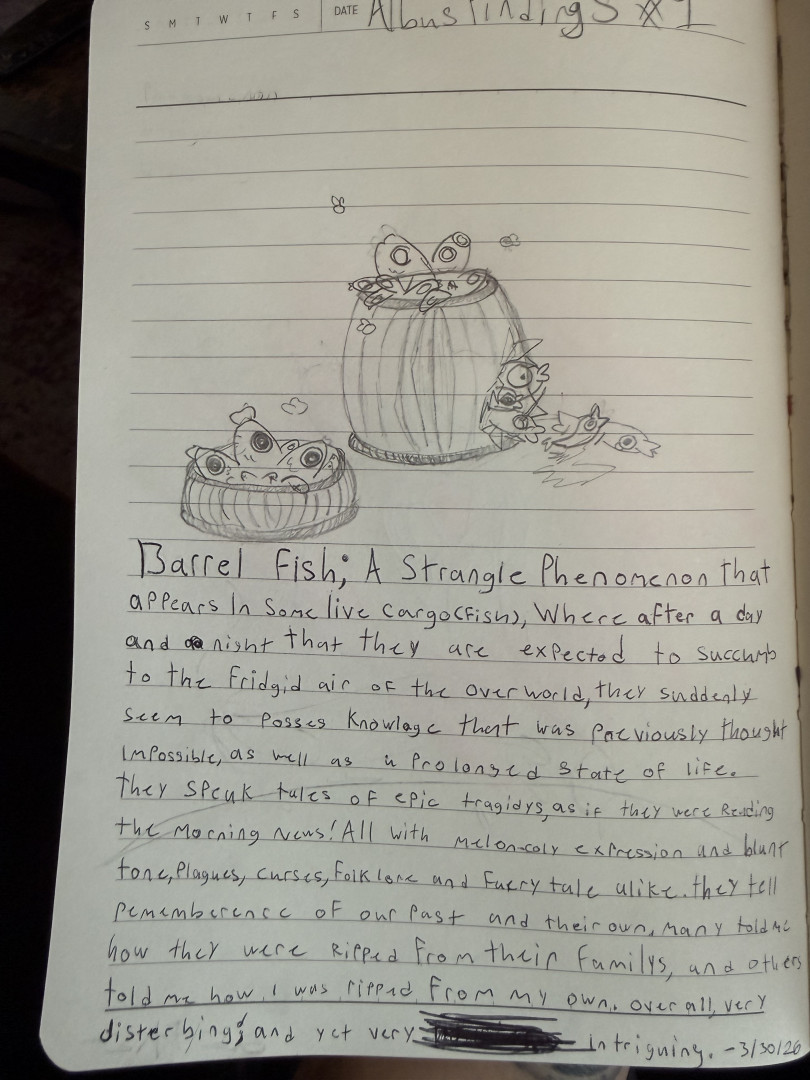 S M T W T F S DATE Albus findings #1
Barrel Fish; A Strangle Phenomenon that
appears In Some live cargo(fish), Where after a day
and night that they are expected to Succumb
to the fridgid air of the over world, they suddenly
seem to posses Knowlage that was previously thought
Impossible, as well as a prolonged state of life.
they speak tales of epic tragidys, as if they were Reading
the Morning News! All with meloncoly expression and blunt
tone, Plagues, curses, folklore and Faery tale alike. they tell
rememberence of our past and their own, Many told me
how they were Ripped from their familys, and others
told me how I was ripped from my own. over all, very
disterbing; and yet very intriguing. -3/30/26